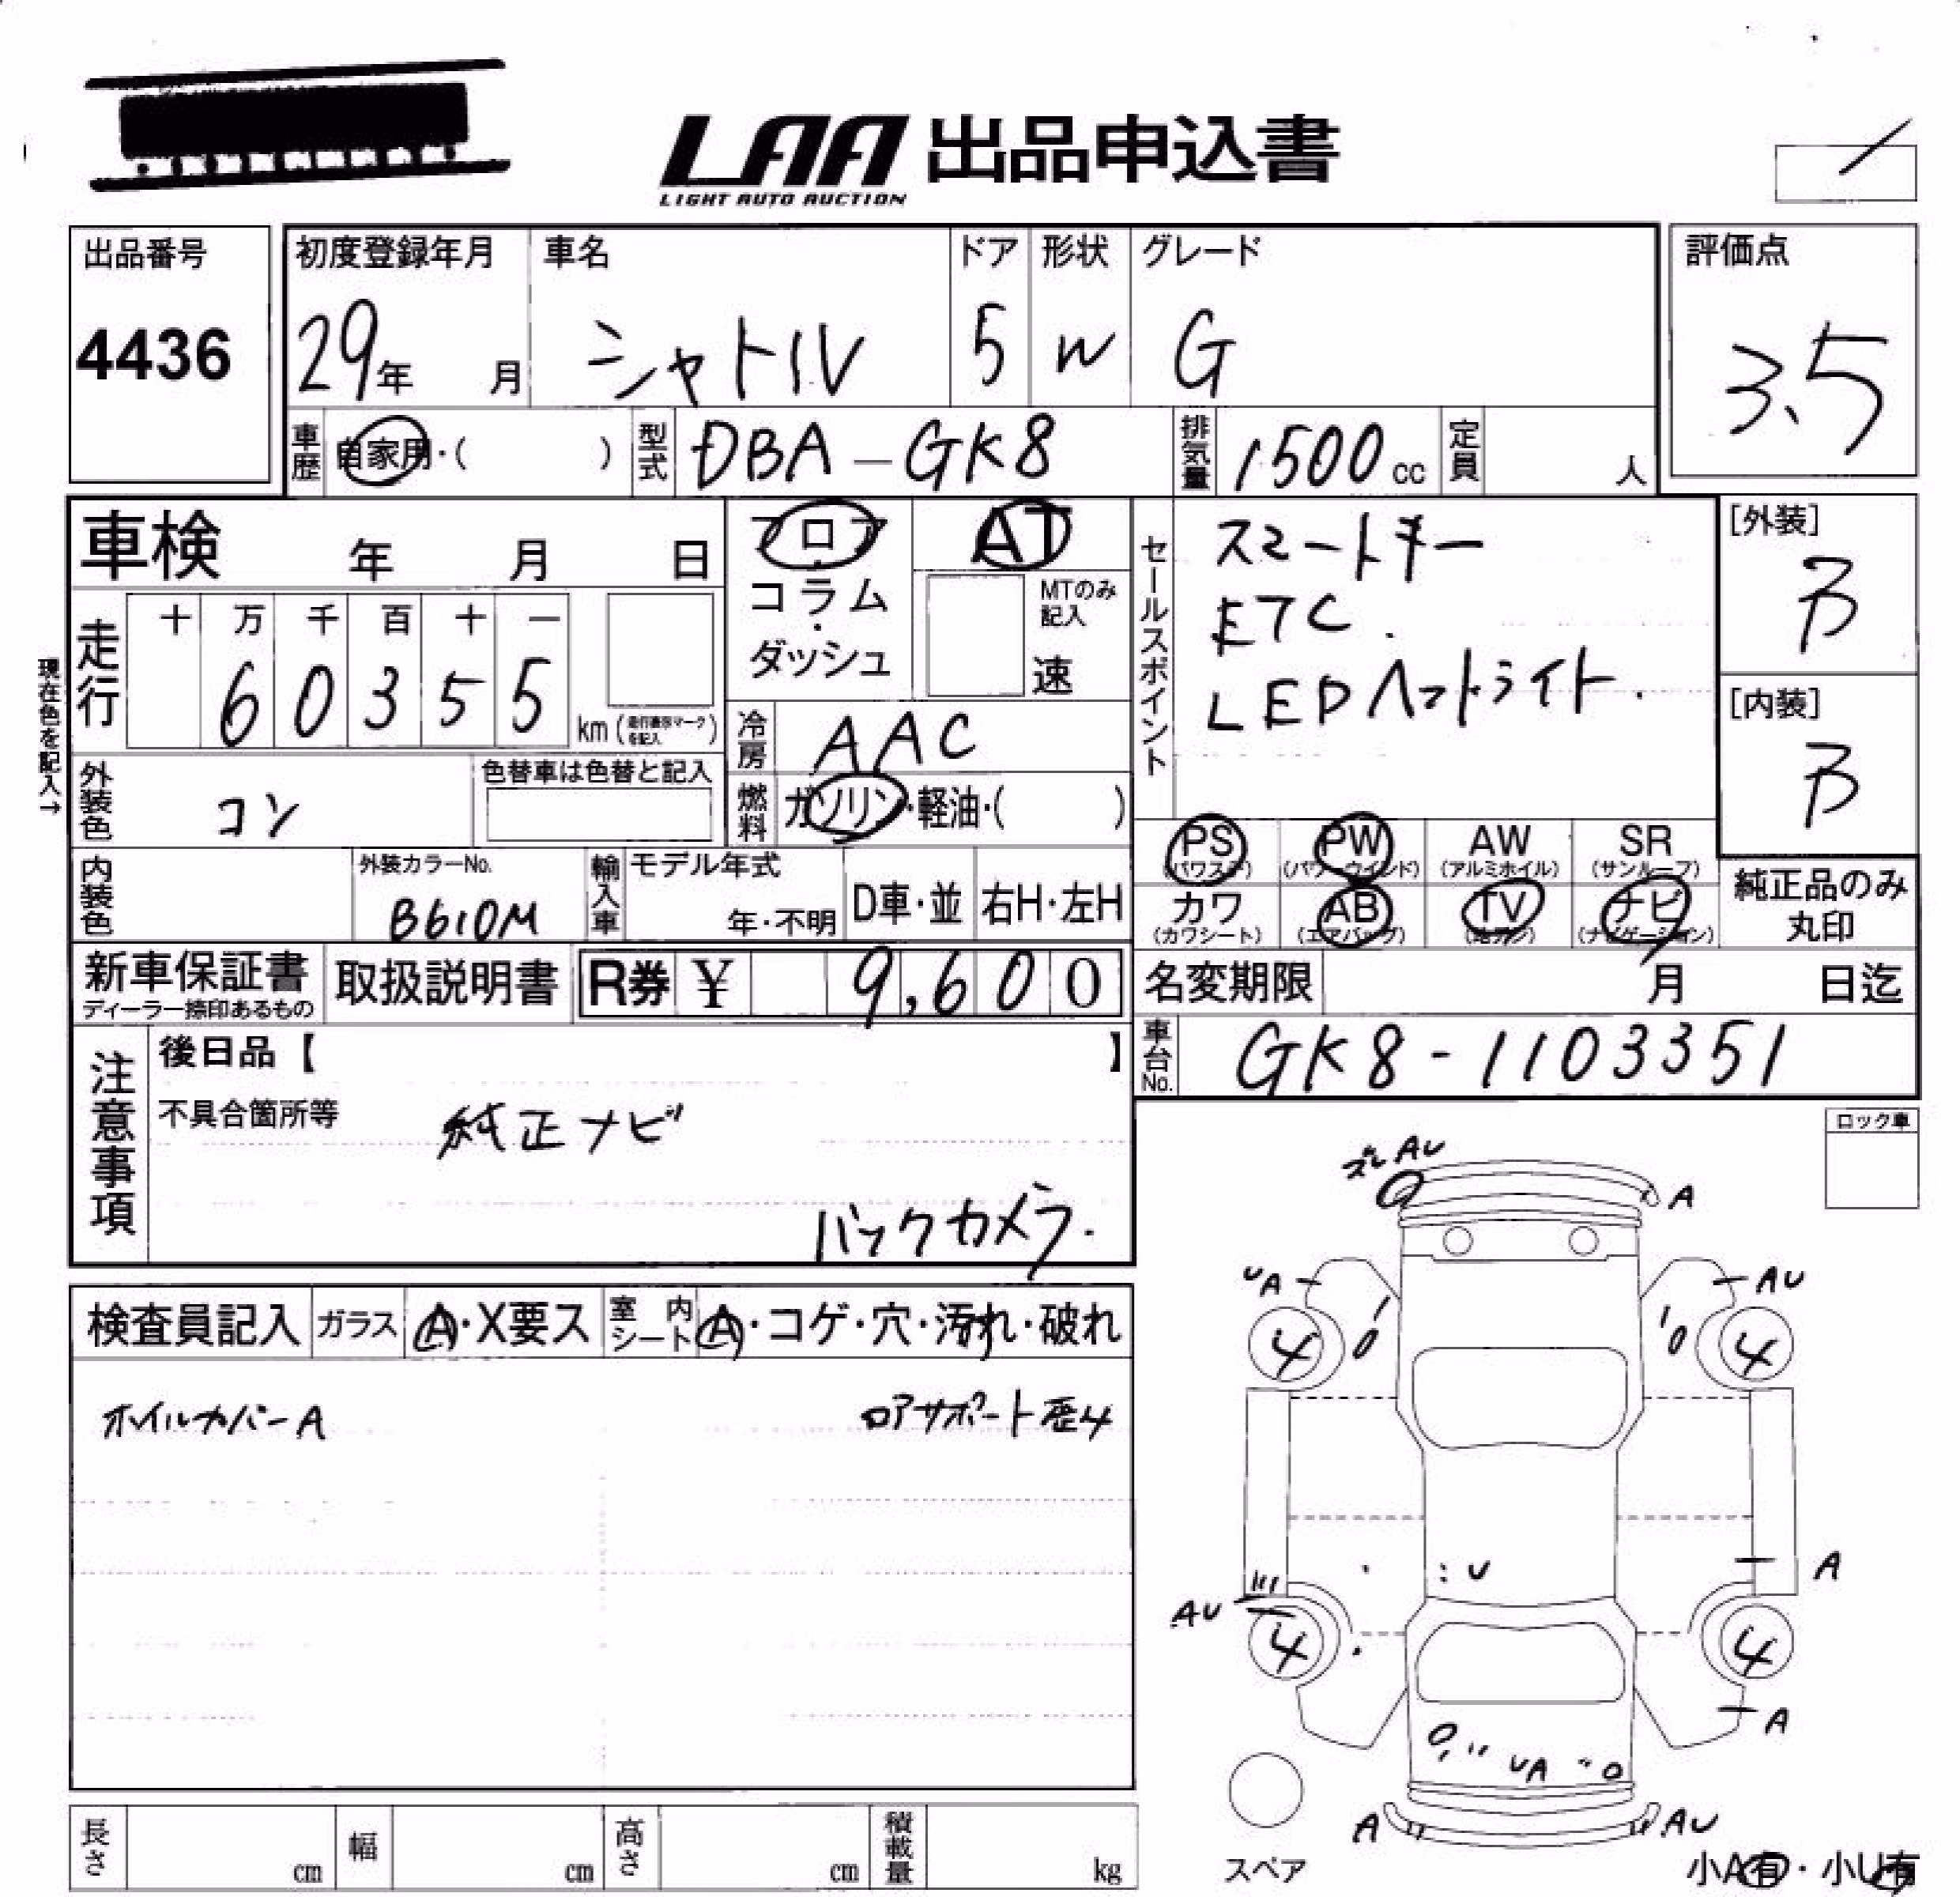 LAA 出品申込書
LIGHT AUTO AUCTION
出品番号
4436
初度登録年月
29年 月
車名
シャトル
ドア
5
形状
W
グレード
G
評価点
3.5
車歴 自家用・( )
型式 DBA-GK8
排気量 1500cc
定員 人
車検 年 月 日
現在色を記入→
走行
十 万 千 百 十 一
6 0 3 5 5
km(走行表示マークを記入)
フロア
・
コラム
・
ダッシュ
AT
MTのみ
記入
速
冷房 AAC
燃料 ガソリン・軽油・( )
外装色 コン
色替車は色替と記入
内装色
外装カラーNo.
B610M
輸入車
モデル年式
年・不明
D車・並
右H・左H
セールスポイント
スマートキー
ETC.
LEDヘッドライト.
[外装]
B
[内装]
B
PS
(パワステ)
PW
(パワーウインド)
AW
(アルミホイル)
SR
(サンルーフ)
カワ
(カワシート)
AB
(エアバッグ)
TV
ナビ
(ナビゲーション)
純正品のみ
丸印
新車保証書
ディーラー捺印あるもの
取扱説明書
R券 ¥ 9,600
名変期限 月 日迄
車台No. GK8-1103351
注意事項
後日品【 】
不具合箇所等
純正ナビ
バックカメラ.
ロック車
検査員記入
ガラス A・X要ス
室内シート A・コゲ・穴・汚れ・破れ
ホイルカバーA
コアサポート歴4
ズレ AU
A
UA
AU
4
4
U
A
AU
4
4
A
UA
A
AU
スペア
小A有・小U有
長さ cm
幅 cm
高さ cm
積載量 kg